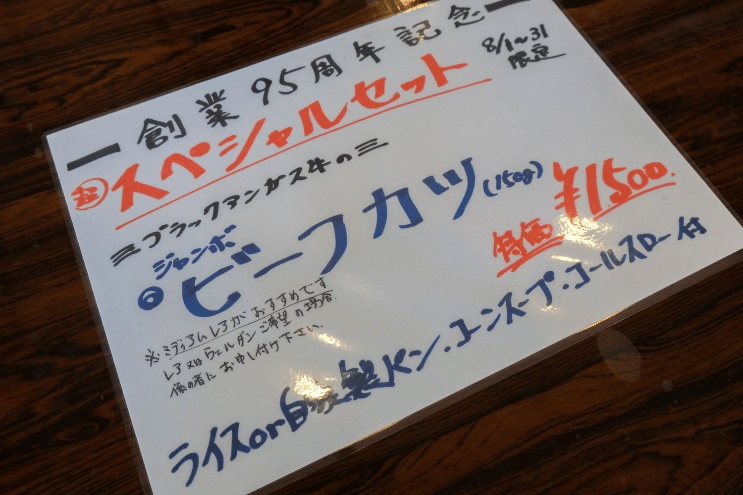 創業95周年記念
8/1~31
限定
スペシャルセット
ブラックアンガス牛の
ジャンボ
ビーフカツ(150g)
特価 ¥1500
※ミディアムレアがおすすめです
レア又はウェルダンご希望の場合
係の者にお申し付け下さい.
ライスor自家製パン・コーンスープ・コールスロー付